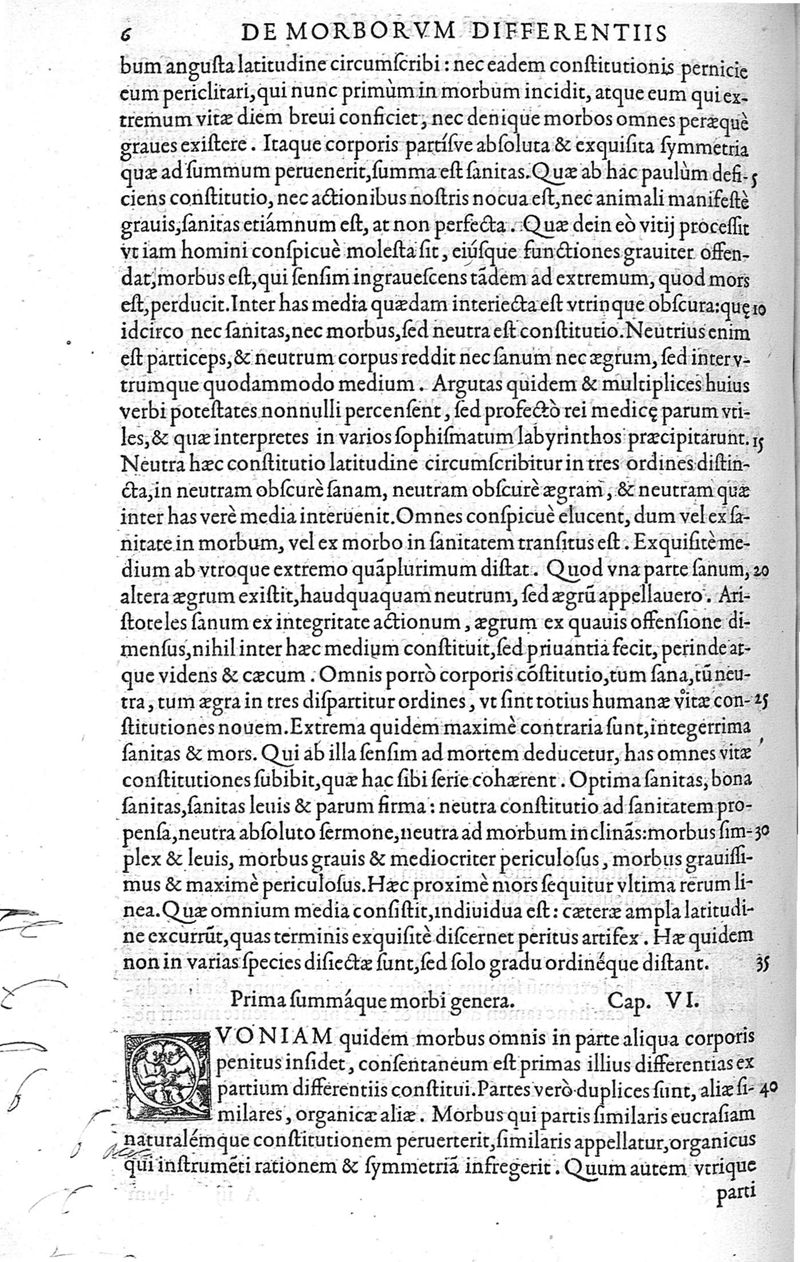 6 DE MORBORVM DIFFERENTIIS
bum angusta latitudine circumscribi : nec eadem constitutionis pernicie
eum periclitari, qui nunc primùm in morbum incidit, atque eum qui ex-
tremum vitæ diem breui conficiet, nec denique morbos omnes peræquè
graues existere. Itaque corporis partísve absoluta & exquisita symmetria
quæ ad summum peruenerit, summa est sanitas. Quæ ab hac paulùm defi- 5
ciens constitutio, nec actionibus nostris nocua est, nec animali manifestè
grauis, sanitas etiámnum est, at non perfecta. Quæ dein eò vitij processit
vt iam homini conspicuè molesta sit, eiúsque functiones grauiter offen-
dat, morbus est, qui sensim ingrauescens tãdem ad extremum, quod mors
est, perducit. Inter has media quædam interiecta est vtrinque obscura: quę 10
idcirco nec sanitas, nec morbus, sed neutra est constitutio. Neutrius enim
est particeps, & neutrum corpus reddit nec sanum nec ægrum, sed inter v-
trumque quodammodo medium. Argutas quidem & multiplices huius
verbi potestates nonnulli percensent, sed profectò rei medicę parum vti-
les, & quæ interpretes in varios sophismatum labyrinthos præcipitarunt. 15
Neutra hæc constitutio latitudine circumscribitur in tres ordines distin-
cta, in neutram obscurè sanam, neutram obscurè ægram, & neutram quæ
inter has verè media interuenit. Omnes conspicuè elucent, dum vel ex sa-
nitate in morbum, vel ex morbo in sanitatem transitus est. Exquisitè me-
dium ab vtroque extremo quãplurimum distat. Quod vna parte sanum, 20
altera ægrum existit, haudquaquam neutrum, sed ægrũ appellauero. Ari-
stoteles sanum ex integritate actionum, ægrum ex quauis offensione di-
mensus, nihil inter hæc medium constituit, sed priuantia fecit, perinde at-
que videns & cæcum. Omnis porrò corporis cõstitutio, tum sana, tũ neu-
tra, tum ægra in tres dispartitur ordines, vt sint totius humanæ vitæ con- 25
stitutiones nouem. Extrema quidem maximè contraria sunt, integerrima
sanitas & mors. Qui ab illa sensim ad mortem deducetur, has omnes vitæ
constitutiones subibit, quæ hac sibi serie cohærent. Optima sanitas, bona
sanitas, sanitas leuis & parum firma : neutra constitutio ad sanitatem pro-
pensa, neutra absoluto sermone, neutra ad morbum inclinãs: morbus sim- 30
plex & leuis, morbus grauis & mediocriter periculosus, morbus grauissi-
mus & maximè periculosus. Hæc proximè mors sequitur vltima rerum li-
nea. Quæ omnium media consistit, indiuidua est : cæteræ ampla latitudi-
ne excurrũt, quas terminis exquisitè discernet peritus artifex. Hæ quidem
non in varias species disiectæ sunt, sed solo gradu ordinéque distant. 35
Prima summáque morbi genera. Cap. VI.
QVONIAM quidem morbus omnis in parte aliqua corporis
penitus insidet, consentaneum est primas illius differentias ex
partium differentiis constitui. Partes verò duplices sunt, aliæ si- 40
milares, organicæ aliæ. Morbus qui partis similaris eucrasiam
naturalémque constitutionem peruerterit, similaris appellatur, organicus
qui instrumẽti rationem & symmetriã infregerit. Quum autem vtrique
parti